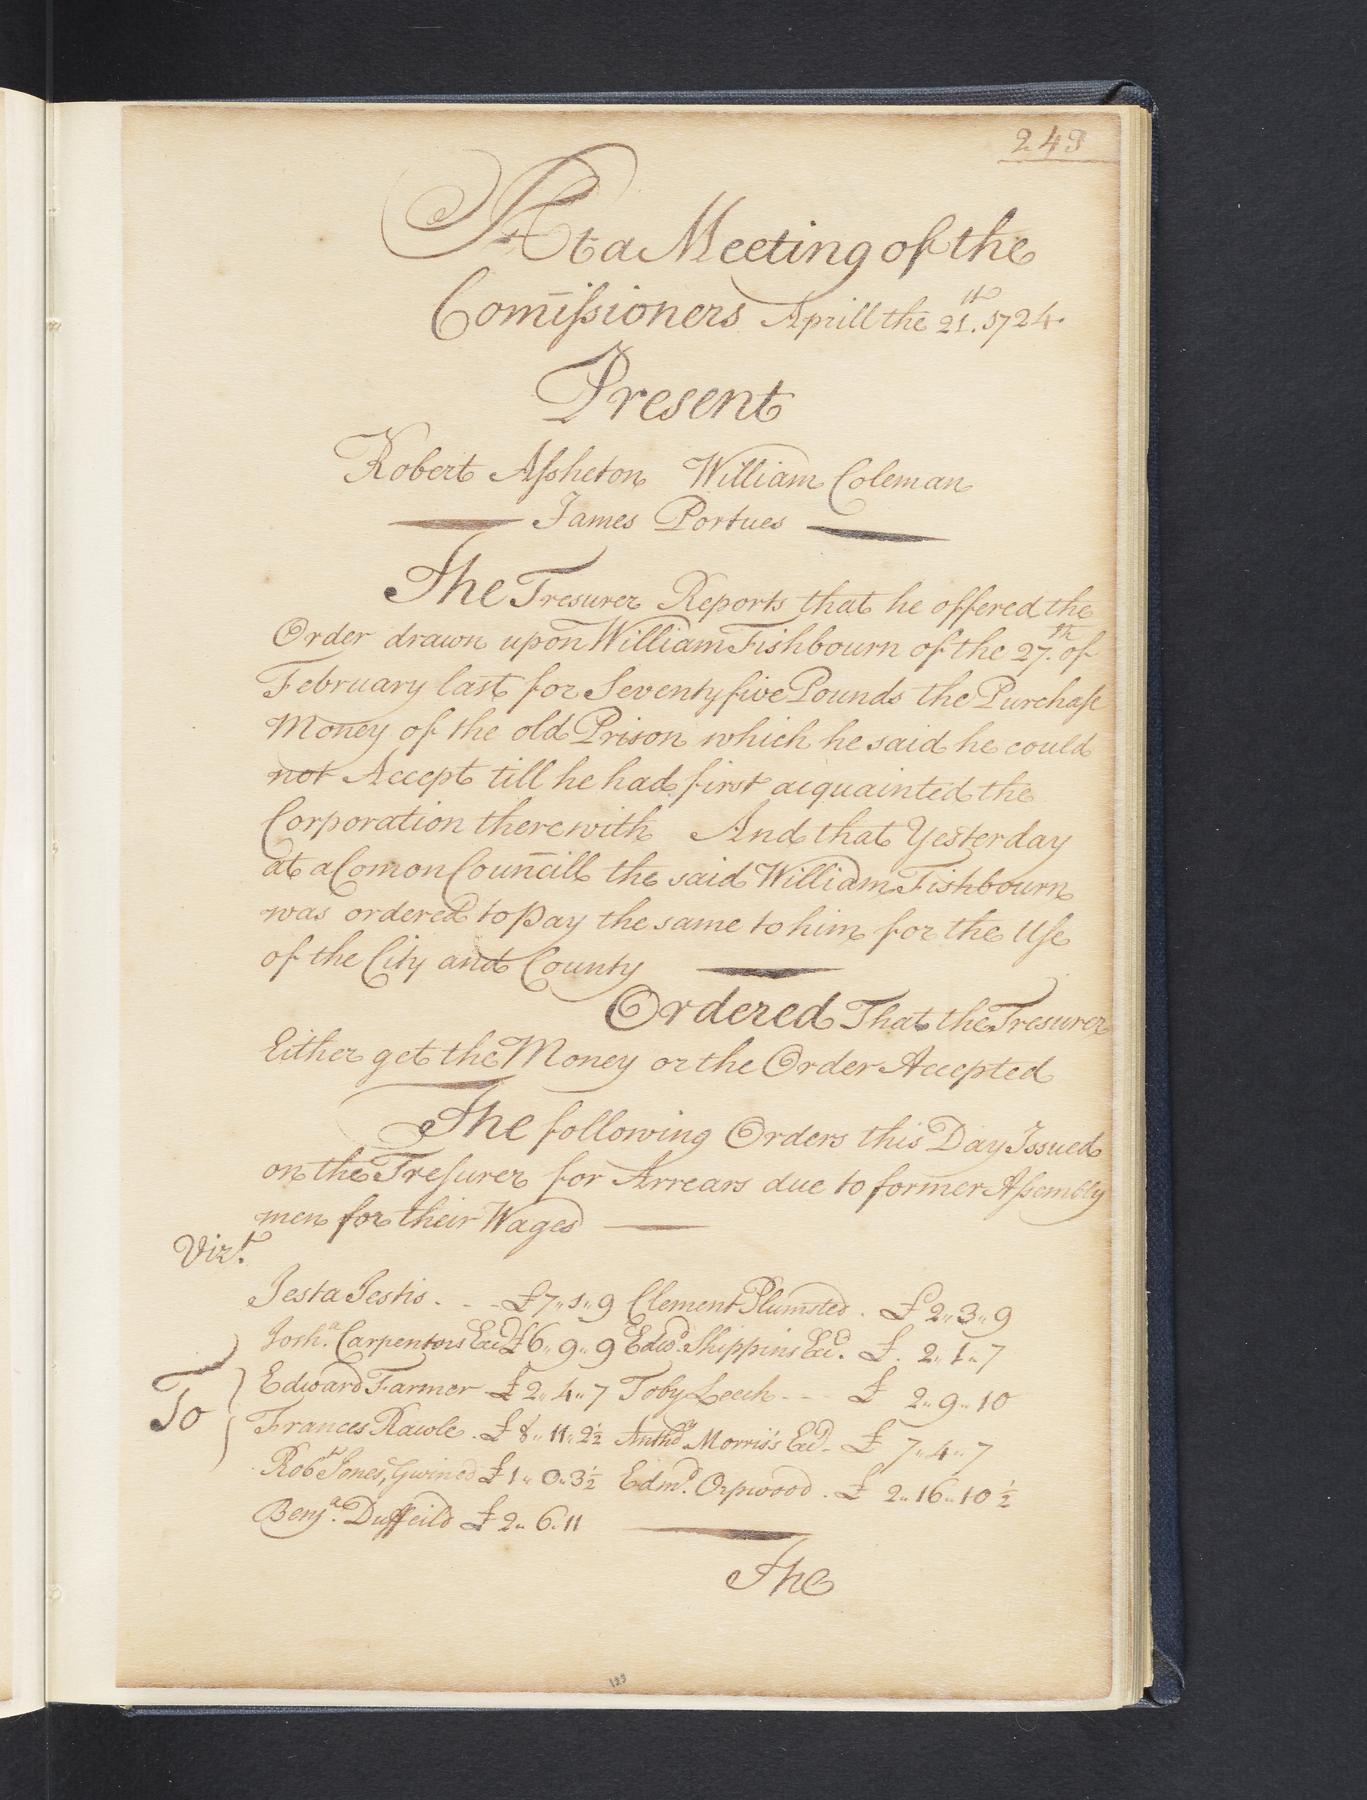 249
At a Meeting of the
Com̄issioners Aprill the 21.st 1724.
Present
Robert Assheton William Coleman
James Portues
The Tresurer Reports that he offered the
Order drawn upon William Fishbourn of the 27.th of
February last for Seventy five Pounds the Purchase
Money of the old Prison which he said he could
not Accept till he had first acquainted the
Corporation therewith And that Yesterday
at a Comon Councill the said William Fishbourn
was ordered to pay the same to him for the Use
of the City and County
Ordered That the Tresurer
Either get the Money or the Order Accepted
The following Orders this Day Issued
on the Tresurer for Arrears due to former Assembly
men for their Wages
Vizt.
To
£7,,5,,9 Clement Plumsted . £ 2,,3,,9
Josha. Carpentors Exd £6,,9,,9 Edwd. Shippins Exd. £. 2,,1,,7
Edward Farmer £2,,4,,7 Toby Leech - - £ 2,,9,,10
Frances Rawle . £8,,11,,2½ Anthoy Morris's Exd. £ 7,,4,,7
Robt Jones, Gwined £1,,0,,3½ Edmd. Orpwood . £ 2,,16,,10½
Benja. Duffeild £2,,6,,11
The